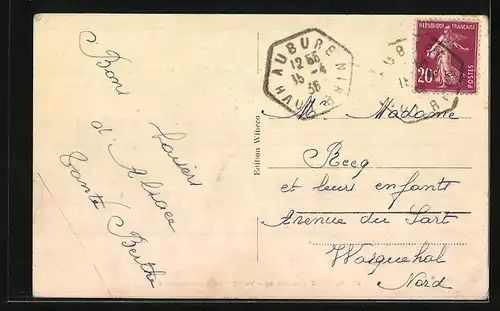 Bons
baisers
d'Alsace
Tante Berthe
Edition Wibeco
AUBURE
12 55
15 -4
36
HAUT RHIN
REPUBLIQUE FRANCAISE
20c
POSTES
Mr Madame
Recq
et leurs enfants
Avenue du Sart
Wasquehal
Nord